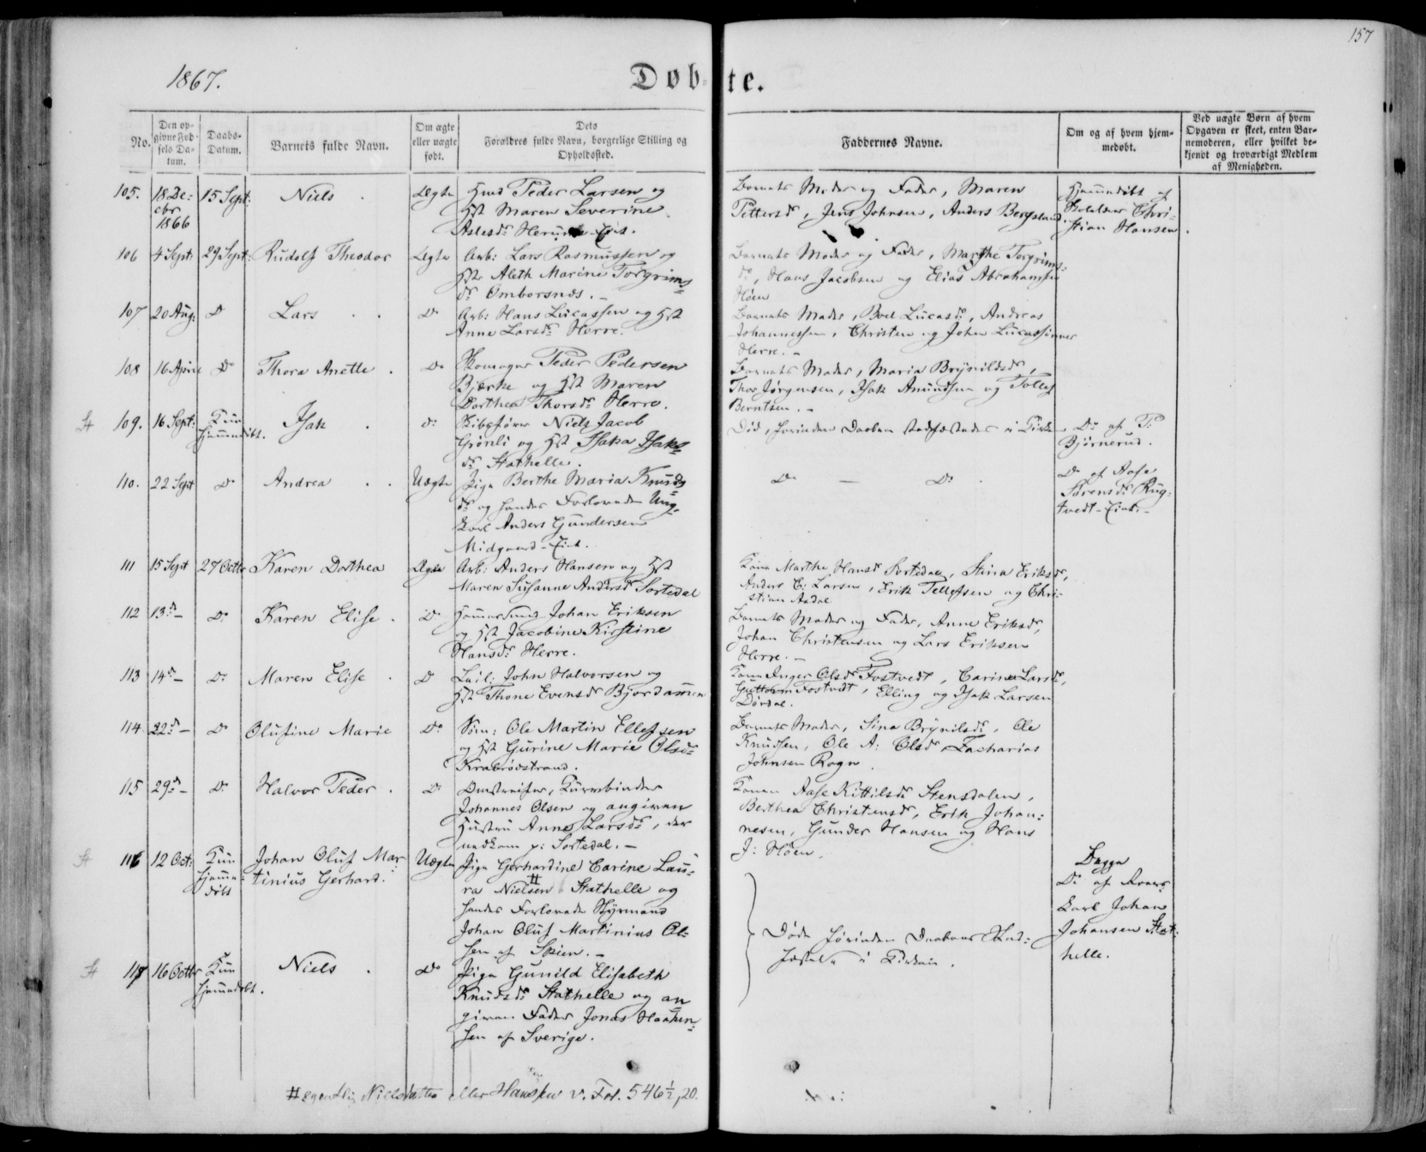 157
1867.
Döbte.
No.
Den opgivne Fødsels Datum.
Daabs-Datum.
Barnets fulde Navn.
Om ægte eller uægte født.
Dets Forældres fulde Navn, borgerlige Stilling og Opholdssted.
Faddernes Navne.
Om og af hvem hjemmedøbt.
Ved uægte Børn af hvem Opgaven er skeet, enten Barnemoderen, eller hvilket bekjendt og troværdigt Medlem af Menigheden.
105. 18 De=
cbr
1866
15 Sept:
Niels
Ægte
Peder Larsen og
Hst Maren Severine
Barnets Moder og Fader, Maren
Pettersdr, Jens Johnsen, Anders Bergsland
Hjemmedøbt af
Skolelærer Chri-
stian Hansen.
106 4 Sept: 29 Sept: Rudolf Theodor Ægte
Arb: Lars Rasmussen og
Hst Aleth Marine Torgrims=
dr Omborsnæs. -
Barnets Moder og Fader, Marthe Torgrims=
dr, Hans Jacobsen og Elias Abrahamsen
Höen
107 20 Aug: Do Lars Do
Arb: Hans Lucassen og Hst
Anne Larsdr Herre.
Barnets Moder, Boel Lucasdr, Andreas
Johannessen, Christen og John Lucassönner
Herre. -
108 16 April Do Thora Anette Do
Skomager Peder Pedersen
Bjerke og Hst Maren
Dorthea Thorsdr Herre.
Barnets Moder, Maria Brynildsdr,
Thor Jørgensen, Isak Amundsen og Tollef
Berntsen. -
109. 16 Sept: Kun
hjemmedöbt.
Isak Do
Skibsfører Niels Jacob
Grönli og Hst Isaka Isaks=
dr Stathelle.
Død, forinden Daaben stadfæstedes i Kirken
Do af P:
Bjørnerud.
110. 22 Sept Do Andrea Uægte
Pige Berthe Maria Knuds=
dr og hendes Forlovede Ung=
karl Anders Gundersen
Midgaard-Eid.
Do - Do
Do af Aase
Sørensdr Rug=
tvedt-Eid.
111 15 Sept 27 Octbr Karen Dorthea Ægte
Arb: Anders Hansen og Hst
Maren Susanne Andersdr Sortedal
Kone Marthe Hansdr Sortedal, Stina Eriksdr,
Anders E: Larsen, Erik Tellefsen og Chri-
stian Aadal
112 13de - Do Karen Elise Do
Hammersmed Johan Eriksen
og Hst Jacobine Kirstine
Hansdr Herre.
Barnets Moder og Fader, Anne Eriksdr,
Johan Christensen og Lars Eriksen
Herre. -
113 14de - Do Maren Elise Do
Leil: John Halvorsen og
Hst Thone Evensdr Bjordammen
Kone Inger Olsdr Tostvedt, Carine Larsdr,
Guttorm Tostvedt, Elling og Isak Larsen
Dördal.
114 22de - Do Olustine Marie Do
Søm: Ole Martin Ellefsen
og Hst Gurine Marie Olsdr
Krabrödstrand.
Barnets Moder, Sina Brynilsdr, Ole
Knudsen, Ole A: Olsdr, Zacharias
Johnsen Rogn
115 29de - Do Halvor Peder Do
Kurvebinder
Johannes Olsen og angiven
Hustru Anne Larsdr, der
nedkom p: Sortedal. -
Konen Aase Kittilsdr Stensdalen,
Berthea Christensdr, Erik Johan=
nesen, Gunder Hansen og Hans
J: Höen.
116 12 Oct: Kun
hjemme=
döbt
Johan Oluf Mar
tinius Gerhard.
Uægte
Pige Gerhardine Carine Lau=
ra Nielsen # Stathelle og
hendes Forlovede Styrmand
Johan Oluf Martinius Ol=
sen af Skien. -
Døde forinden Daabens Stad=
fæstelse i Kirken.
Bagge
Do af
karl Johan
Johansen Stat=
helle.
117 16 Octbr Kun
hjemmedøbt.
Niels Do
Pige Gunild Elisabeth
Knudsdr Stathelle og an
given Fader Jonas Haaken=
sen af Sverige.
# egentlig Nielsdatter eller Hansen v. Fol. 546½, 20.